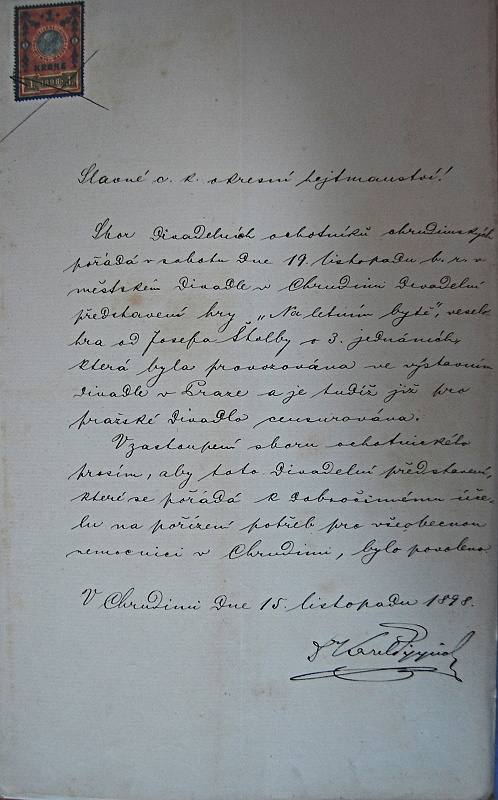 1
KRONE
1 1898 1
Slavné c. k. okresní hejtmanství!
Sbor divadelních ochotníků chrudimských
pořádá v sobotu dne 19. listopadu b. r. v
městském divadle v Chrudimi divadelní
představení hry „Na letním bytě“, veselo-
hra od Josefa Štolby o 3. jednáních,
která byla provozována ve výstavním
divadle v Praze a je tudíž již pro
pražské divadlo censurována.
V zastoupení sboru ochotnického
prosím, aby toto divadelní představení,
které se pořádá k dobročinnému úče-
lu na pořízení potřeb pro všeobecnou
nemocnici v Chrudimi, bylo povoleno
V Chrudimi dne 15. listopadu 1898.
Dr Karel